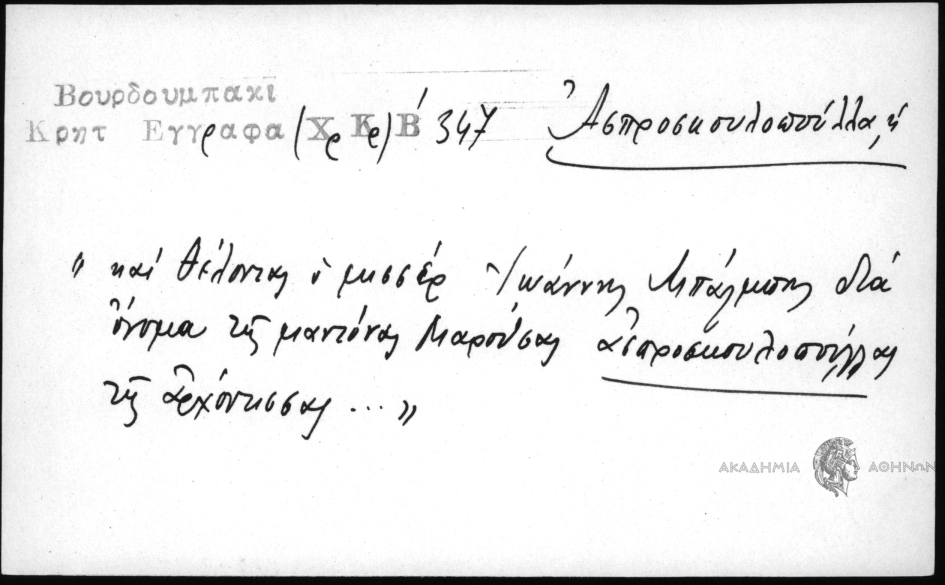 Βουρδουμπακι
Κρητ Εγγραφα (Χρ Κρ) Β΄ 347 Ἀσπροσκουλοπούλλα, ἡ
" καὶ θέλοντας ὁ μισσὲρ Ἰωάννης Μπάλμπης διὰ
ὄνομα τῆς μαντόνας Μαρούσας ἀσπροσκουλοπούλλας
τῆς ἀρχόντισσας ... "
ΑΚΑΔΗΜΙΑ ΑΘΗΝΩΝ